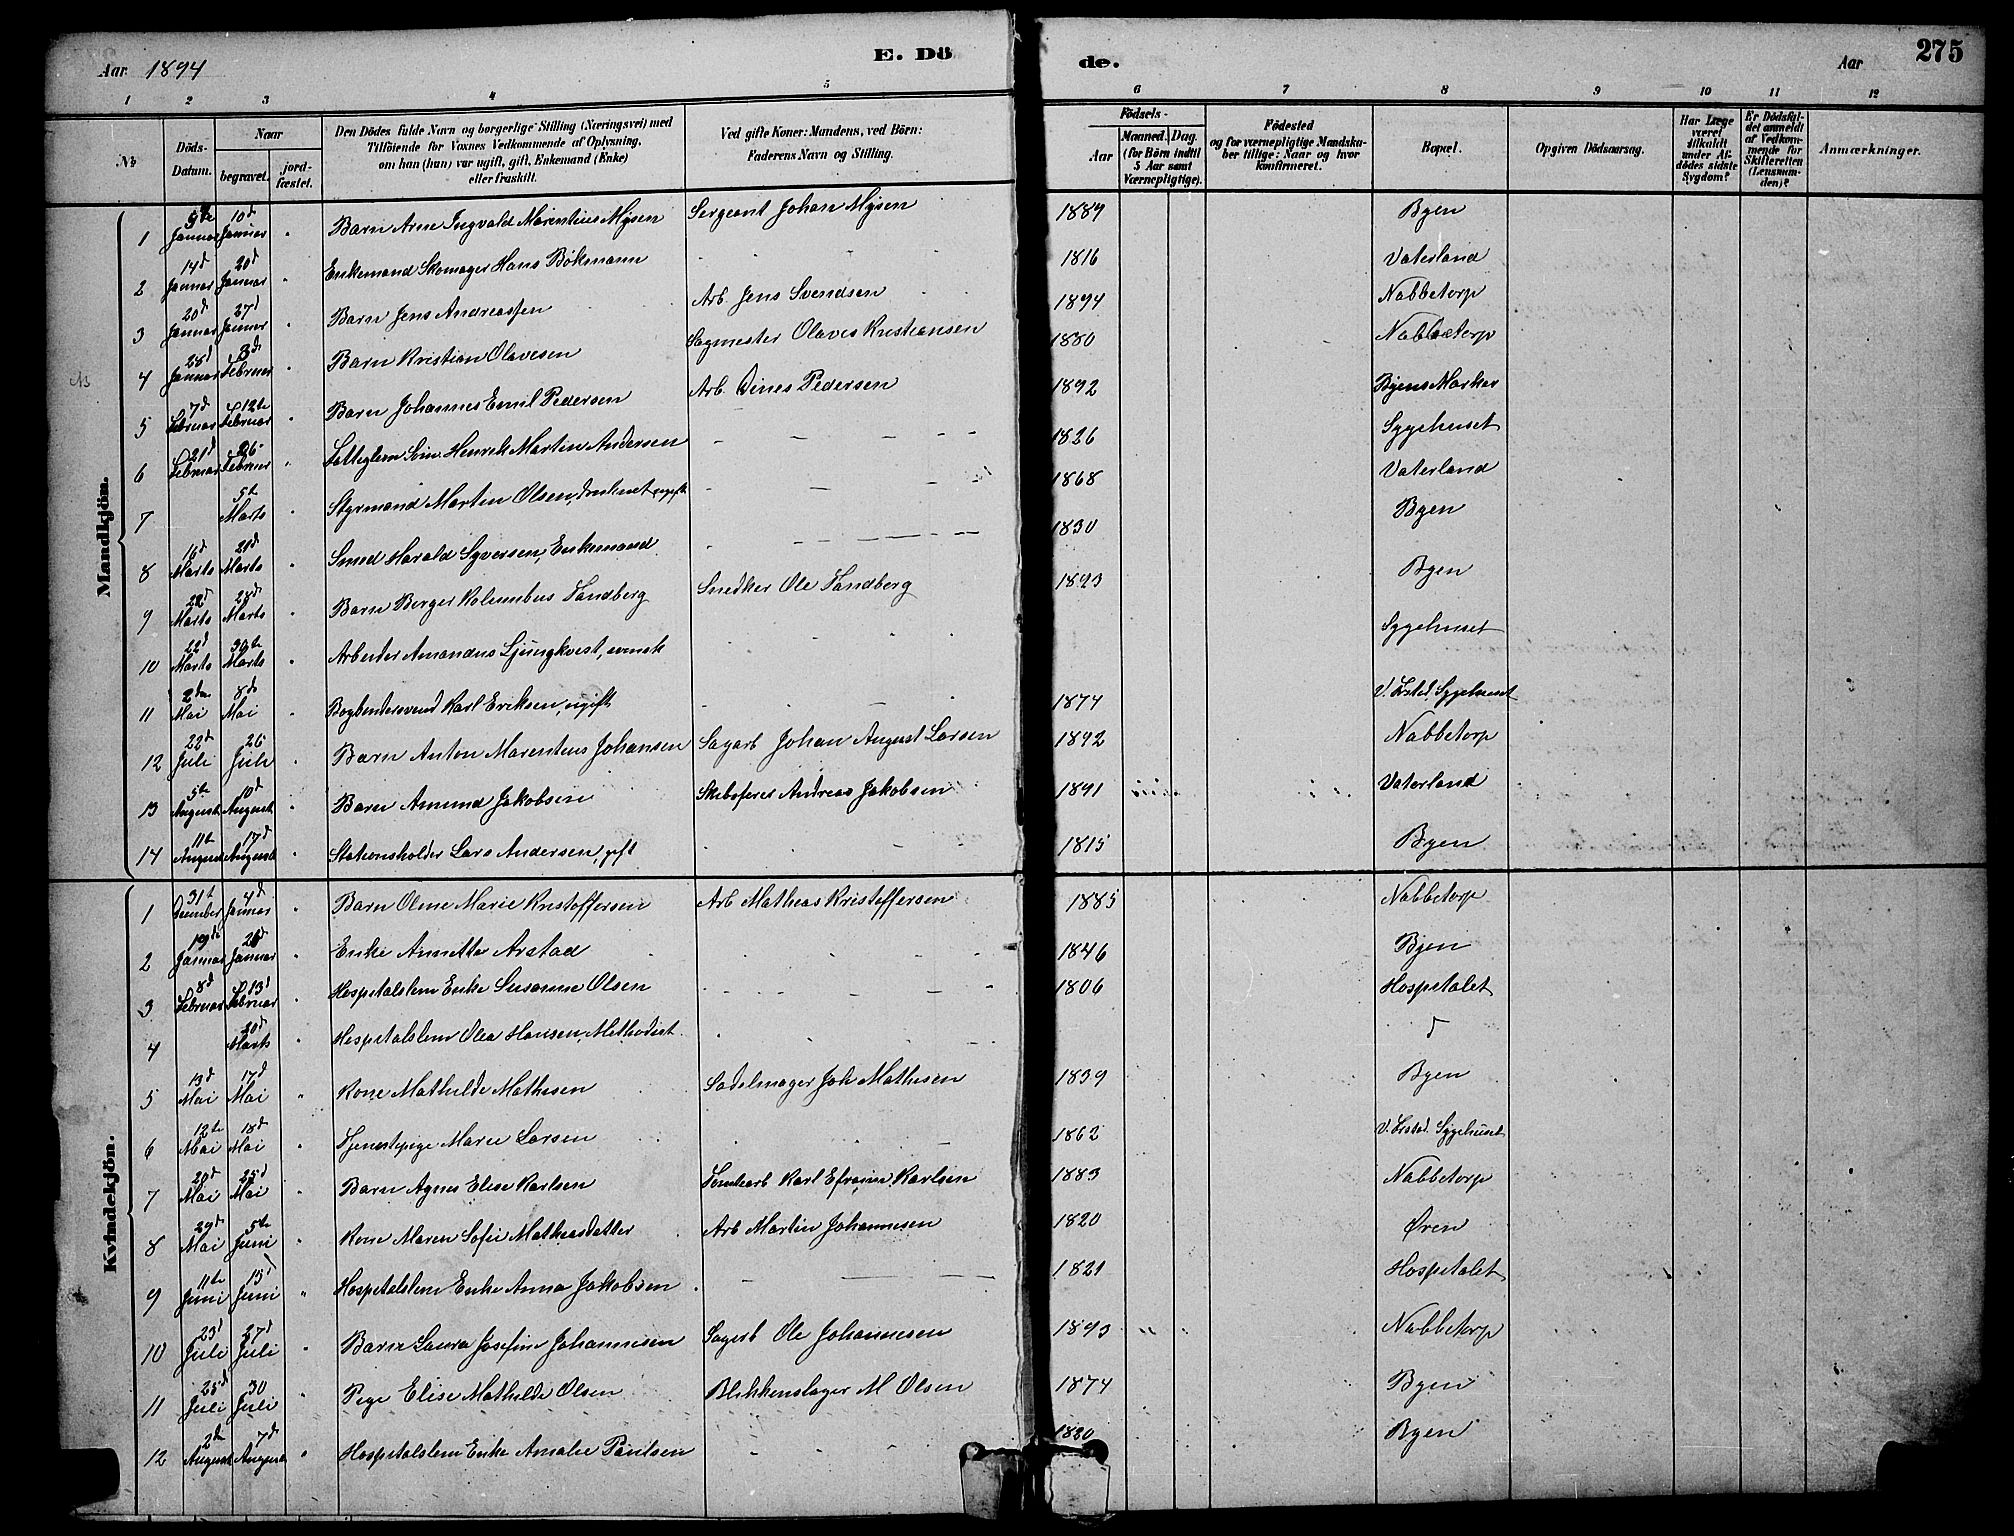 Aar 1894
E. Dö de.
Aar
275
1 2 3 4 5 6 7 8 9 10 11 12
No
Döds-Datum.
Naar
begravet.
jord-fæstet.
Den Dödes fulde Navn og borgerlige Stilling (Næringsvei) med
Tilföiende for Voxnes Vedkommende af Oplysning,
om han (hun) var ugift, gift, Enkemand (Enke)
eller fraskilt.
Ved gifte Koner: Mandens, ved Börn:
Faderens Navn og Stilling.
Födsels-
Aar
Maaned. Dag.
(for Börn indtil
5 Aar samt
Værnepligtige).
Födested
og for værnepligtige Mandska-
ber tillige: Naar og hvor
konfirmeret.
Bopæl.
Opgiven Dödsaarsag.
Har Læge
været
tilkaldt
under Af-
dödes sidste
Sygdom?
Er Dödsfal-
det anmeldt
af Vedkom-
mende for
Skifteretten
(Lensman-
den)?
Anmærkninger.
Mandkjön.
1 5te Januar 10d Januar " Barn Arne Ingvald Marentius Mysen Sergeant Johan Mysen 1889 Byen
2 14d Januar 20d Januar " Enkemand Skomager Hans Böksmann 1816 Vaterland
3 20d Januar 27d Januar " Barn Jens Andreassen Arb. Jens Svendsen 1894 Nabbetorp
4 28d Januar 3d Februar " Barn Kristian Olavesen Sagmester Olaves Kristiansen 1880 Nabbetorp
5 7d Februar 12te Februar Barn Johannes Emil Pedersen Arb. Dines Pedersen 1892 Byens Marker
6 21d Februar 26 Februar " Fatteglem Svin Henrik Martin Andersen 1826 Sygehuset
7 5te Marts " Styrmand Martin Olsen, druknet ugift 1868 Vaterland
8 16d Marts 21d Marts " Smed Harald Syversen, Enkemand 1830 Byen
9 22d Marts 28d Marts " Barn Berger Kolumbus Sandberg Snedker Ole Sandberg 1893 Byen
10 22d Marts 30te Marts " Arbeider Amandus Ljungkvist, svensk Sygehuset
11 2den Mai 8de Mai " Bogbindersvend Karl Eriksen, ugift 1874 V. Frstad. Sygehuset
12 22d Juli 26 Juli " Barn Anton Marentius Johansen Sagarb Johan August Larsen 1892 Nabbetorp
13 5te August 10d August " Barn Amund Jakobsen Skibsfører Andreas Jakobsen 1891 Vaterland
14 11te August 17d August " Stationsholder Lars Andersen, gift 1815 Byen
Kvindekjön.
1 31te December 4d Januar " Barn Oline Marie Kristoffersen Arb Mathias Kristoffersen 1885 Nabbetorp
2 19de Januar 26d Januar " Enke Annette Arstad 1846 Byen
3 8d Februar 13d Februar " Hospitalslem Enke Susanne Olsen 1806 Hospitalet
4 20d Marts " Hospitalslem Olea Hansen, Methodist d
5 13d Mai 17d Mai " Kone Mathilde Mathisen Sadelmager Joh Mathisen 1839 Byen
6 12te Mai 18d Mai " Tjenestepige Marie Larsen 1862 V. Frstad. Sygehuset
7 20d Mai 25d Mai " Barn Agnes Elise Karlsen Tomtearb Karl Efraim Karlsen 1883 Nabbetorp
8 29d Mai 5te Juni " Kone Maren Sofie Mathiasdatter Arb Martin Johannesen 1820 Øren
9 11te Juni 15d Juni " Hospitalslem Enke Anna Jakobsen 1821 Hospitalet
10 23d Juli 27d Juli " Barn Laura Josefine Johannesen Sagarb Ole Johannesen 1893 " " Nabbetorp
11 25d Juli 30 Juli " Pige Elise Mathilde Olsen Blikkenslager M Olsen 1874 Byen
12 2den August 7d August " Hospitalslem Enke Amalie Paulsen 1820 Byen